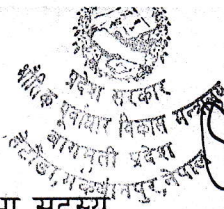 प्रदेश सरकार
भौतिक पूर्वाधार विकास मन्त्रालय
बागमती प्रदेश
हेटौंडा, मकवानपुर, नेपाल
सदस्य